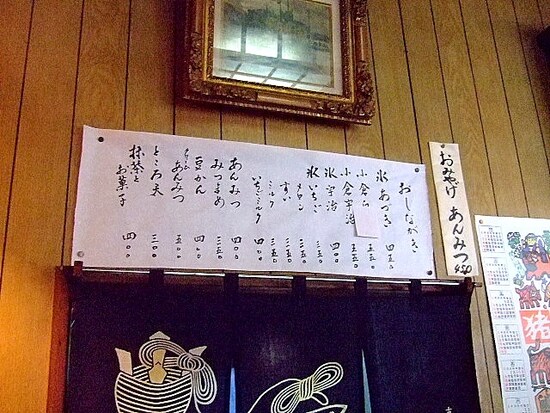 おしながき
氷あづき 四五〇
小倉氷 五五〇
小倉宇治 五五〇
氷宇治 四〇〇
氷いちご 三五〇
メロン 三五〇
すい 三五〇
ミルク 三五〇
いちごミルク 四〇〇
あんみつ 四五〇
みつまめ 四〇〇
豆かん 四〇〇
クリームあんみつ 五五〇
ところ天 三〇〇
抹茶とお菓子 四〇〇
おみやげ あんみつ 450
猪